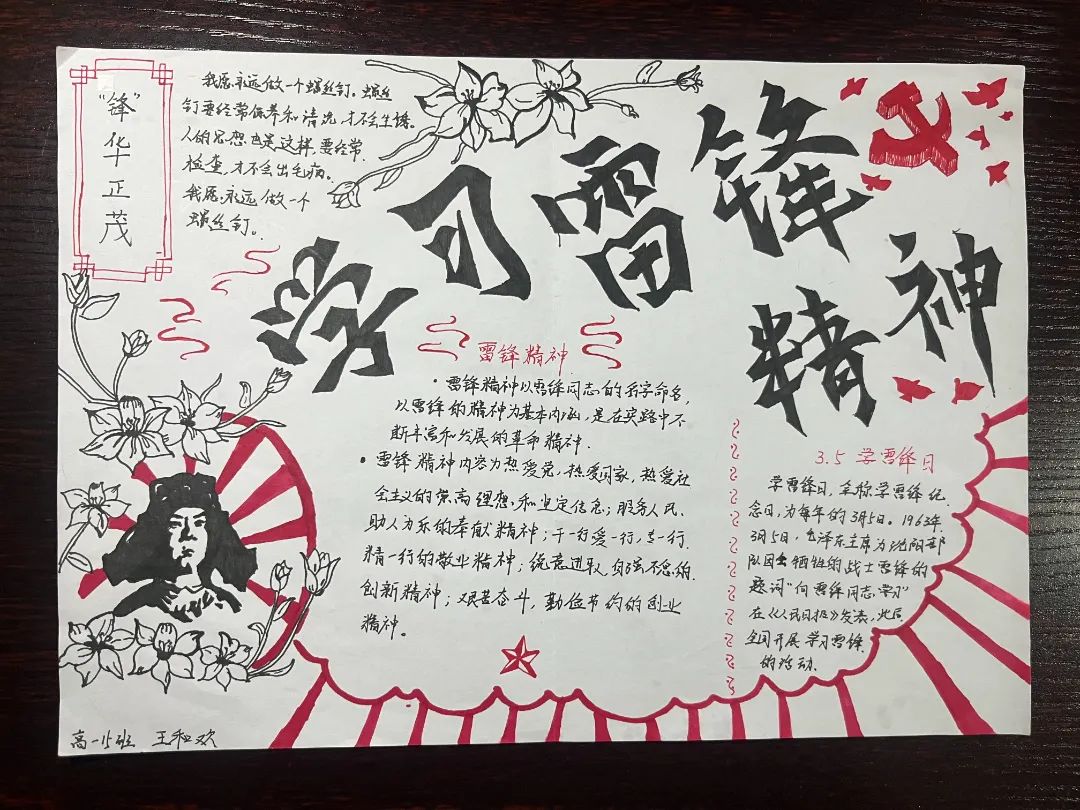 "锋"
华
正
茂
我愿永远做一个螺丝钉。螺丝
钉要经常保养和清洗,才不会生锈。
人的思想也是这样,要经常
检查,才不会出毛病。
我愿永远做一个
螺丝钉。
学习雷锋
精神
雷锋精神
·雷锋精神以雷锋同志的名字命名,
以雷锋的精神为基本内涵,是在实践中不
断丰富和发展的革命精神.
·雷锋精神内容为热爱党、热爱国家、热爱社
会主义的崇高理想和坚定信念;服务人民、
助人为乐的奉献精神;干一行爱一行,专一行
精一行的敬业精神;锐意进取、自强不息的
创新精神;艰苦奋斗,勤俭节约的创业
精神。
3.5 学雷锋日
学雷锋日,全称学雷锋纪
念日,为每年的3月5日。1963年
3月5日,毛泽东主席为沈阳部
队因公牺牲的战士雷锋的
题词"向雷锋同志学习"
在《人民日报》发表,此后
全国开展学习雷锋
的活动.
高一15班 王和欢